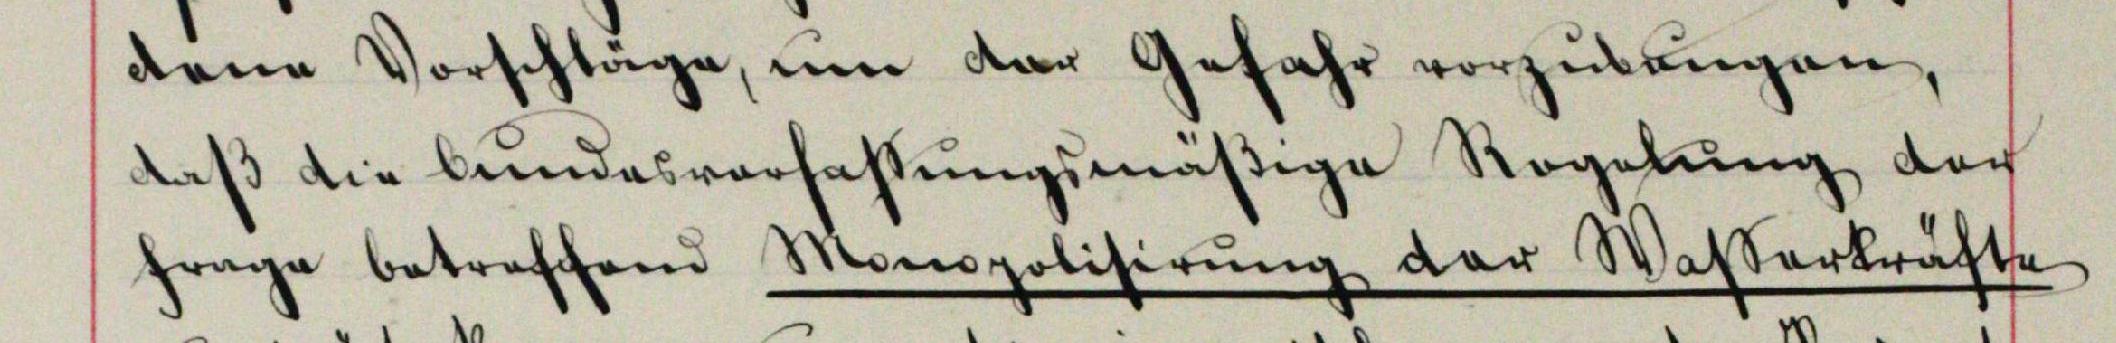 dene Vorschläge, um der Gefahr vorzubeugen,
daß die bundesverfassungsmäßige Regelung der
Frage betreffend Monopolisirung der Wasserkräfte